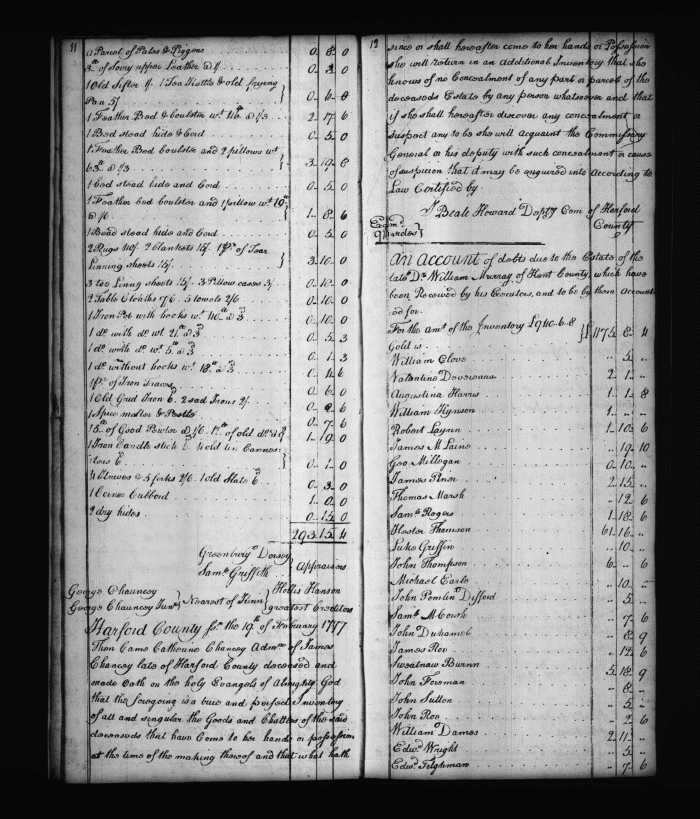 11
1 Parcel of Pales & Piggons 0 8 0
3 lb of Sory upper Leather @ 1/ 0 3 0
1 Old Sifter 1/. 1 Tea Kettle & old frying
Pan 5/ 0 6 8
1 Feather Bed & boulster wt 46 lb @ 1/3 2 17 6
1 Bed stead hide & Cord 0 5 0
1 Feather Bed boulster and 2 pillows wt
63 lb @ 1/3 3 19 8
1 bed stead hide and Cord 0 5 0
1 Feather bed boulster and 1 pillow wt 19 lb
@ 1/6 1 8 6
1 Bead stead hide and Cord 0 5 0
2 Rugs 40/ 2 blankets 15/. 1 pr of Toar
Linning sheets 15/. 3 10 0
3 too Linng sheets 15/. 3 Pillow cases 3/ 0 18 0
2 Table Cloths 7/6. 5 towels 2/6 0 10 0
1 Iron Pot with hooks wt 40 lb @ 3d 0 10 0
1 do with do wt 21 lb @ 3d 0 5 3
1 do with do wt 5 lb @ 3d 0 1 3
1 do without hooks wt 18 lb @ 3d 0 4 6
1 pr of Iron Traces 0 6 0
1 Old Grid Iron 6d. 2 sad Irons 2/. 0 2 6
1 Spice morter & Pestle 0 7 6
15 lb of Good Pewter @ 1/6. of old do @ 1 19 0
1 Iron Candle stick 6d. 4 old tin Cannes-
ters 6d 0 1 0
4 Knives & 5 forks 2/6. 1 old Slate 6d 0 3 0
1 Corner Cubbord 1 0 0
2 dry hides 0 15 0
293 15 4
Greenbury Dorsey
Saml Griffith } Appraisers
George Chauncey
George Chauncey Junr } Nearest of Kinn } Hollis Hanson
greatest Creditors
Harford County Sc. the 19th of February 1777
Then Came Catherine Chancey Admx of James
Chancey late of Harford County deceased and
made Oath on the holy Evangels of Almighty God
that the foregoing is a true and perfect Inventory
of all and singular the Goods and Chattles of the said
deceaseds that have Come to her hands or possession
at the time of the making thereof and that what hath
12
since or shall hereafter come to her hands or Possession
she will return in an Additional Inventory that she
knows of no Concealment of any part or parcel of the
deceaseds Estate by any person whatsoever and that
if she shall hereafter discover any concealment or
suspect any to be she will acquaint the Commissary
General or his deputy with such concealment or cause
of suspicion that it may be enquired into According to
Law Certified by
Beale Howard Depty Com of Harford
County
Exam'd
9 Sides }
An Account of debts due to the Estate of the
late Dr William Murray of Kent County which have
been Received by his Executors, and to be by them Account-
ed for.
For the amt of the Inventory £940.6.8
Gold is } £1175 8 4
William Clove .. 5 ..
Valentine Devereaux 2 1 ..
Augustina Harris 1 1 8
William Hynson 1 .. ..
Robert Laynn 1 10 6
James M Laine .. 19 10
Geo Millegan 0 10 ..
James Piner 2 15 ..
Thomas Marsh .. 12 6
Saml Rogers 1 18 6
Hester Thomson 61 16 ..
Luke Griffin .. 10 ..
John Thompson 6 .. 6
Michael Earle .. 10 ..
John Pomlin Difford .. 5 ..
Saml McCosh .. 7 6
John Duhamel .. 8 9
James Roe .. 12 6
Sweatnaw Burnn 5 18 9
John Forsman .. 8 ..
John Sutton .. 5 ..
John Roe .. 2 6
William Dames 2 11 ..
Edwd Wright .. 5 ..
Edwd Tilghman .. 7 6